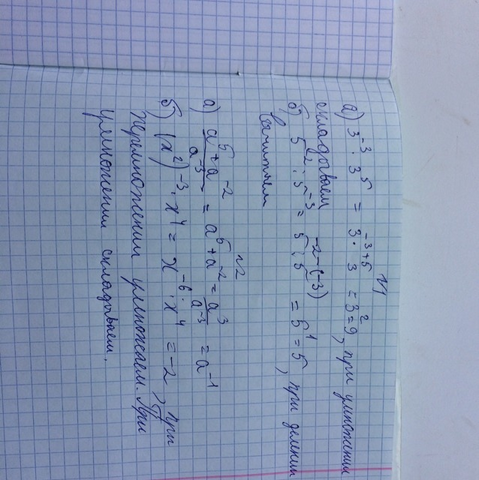 №1
а) 3⁻³ · 3⁵ = 3 · 3⁻³⁺⁵ = 3² = 9, при умножении
складываем
б) 5⁻² : 5⁻³ = 5 : 5⁻²⁻⁽⁻³⁾ = 5¹ = 5, при делении
вычитаем
№2
а) a⁵ + a⁻² / a⁻³ = a⁵ + a⁻² = a³ / a⁻³ = a⁻¹
б) (x²)⁻³ · x⁴ = x⁻⁶ · x⁴ = -2, при
перемножении умножаем. При
умножении складываем.